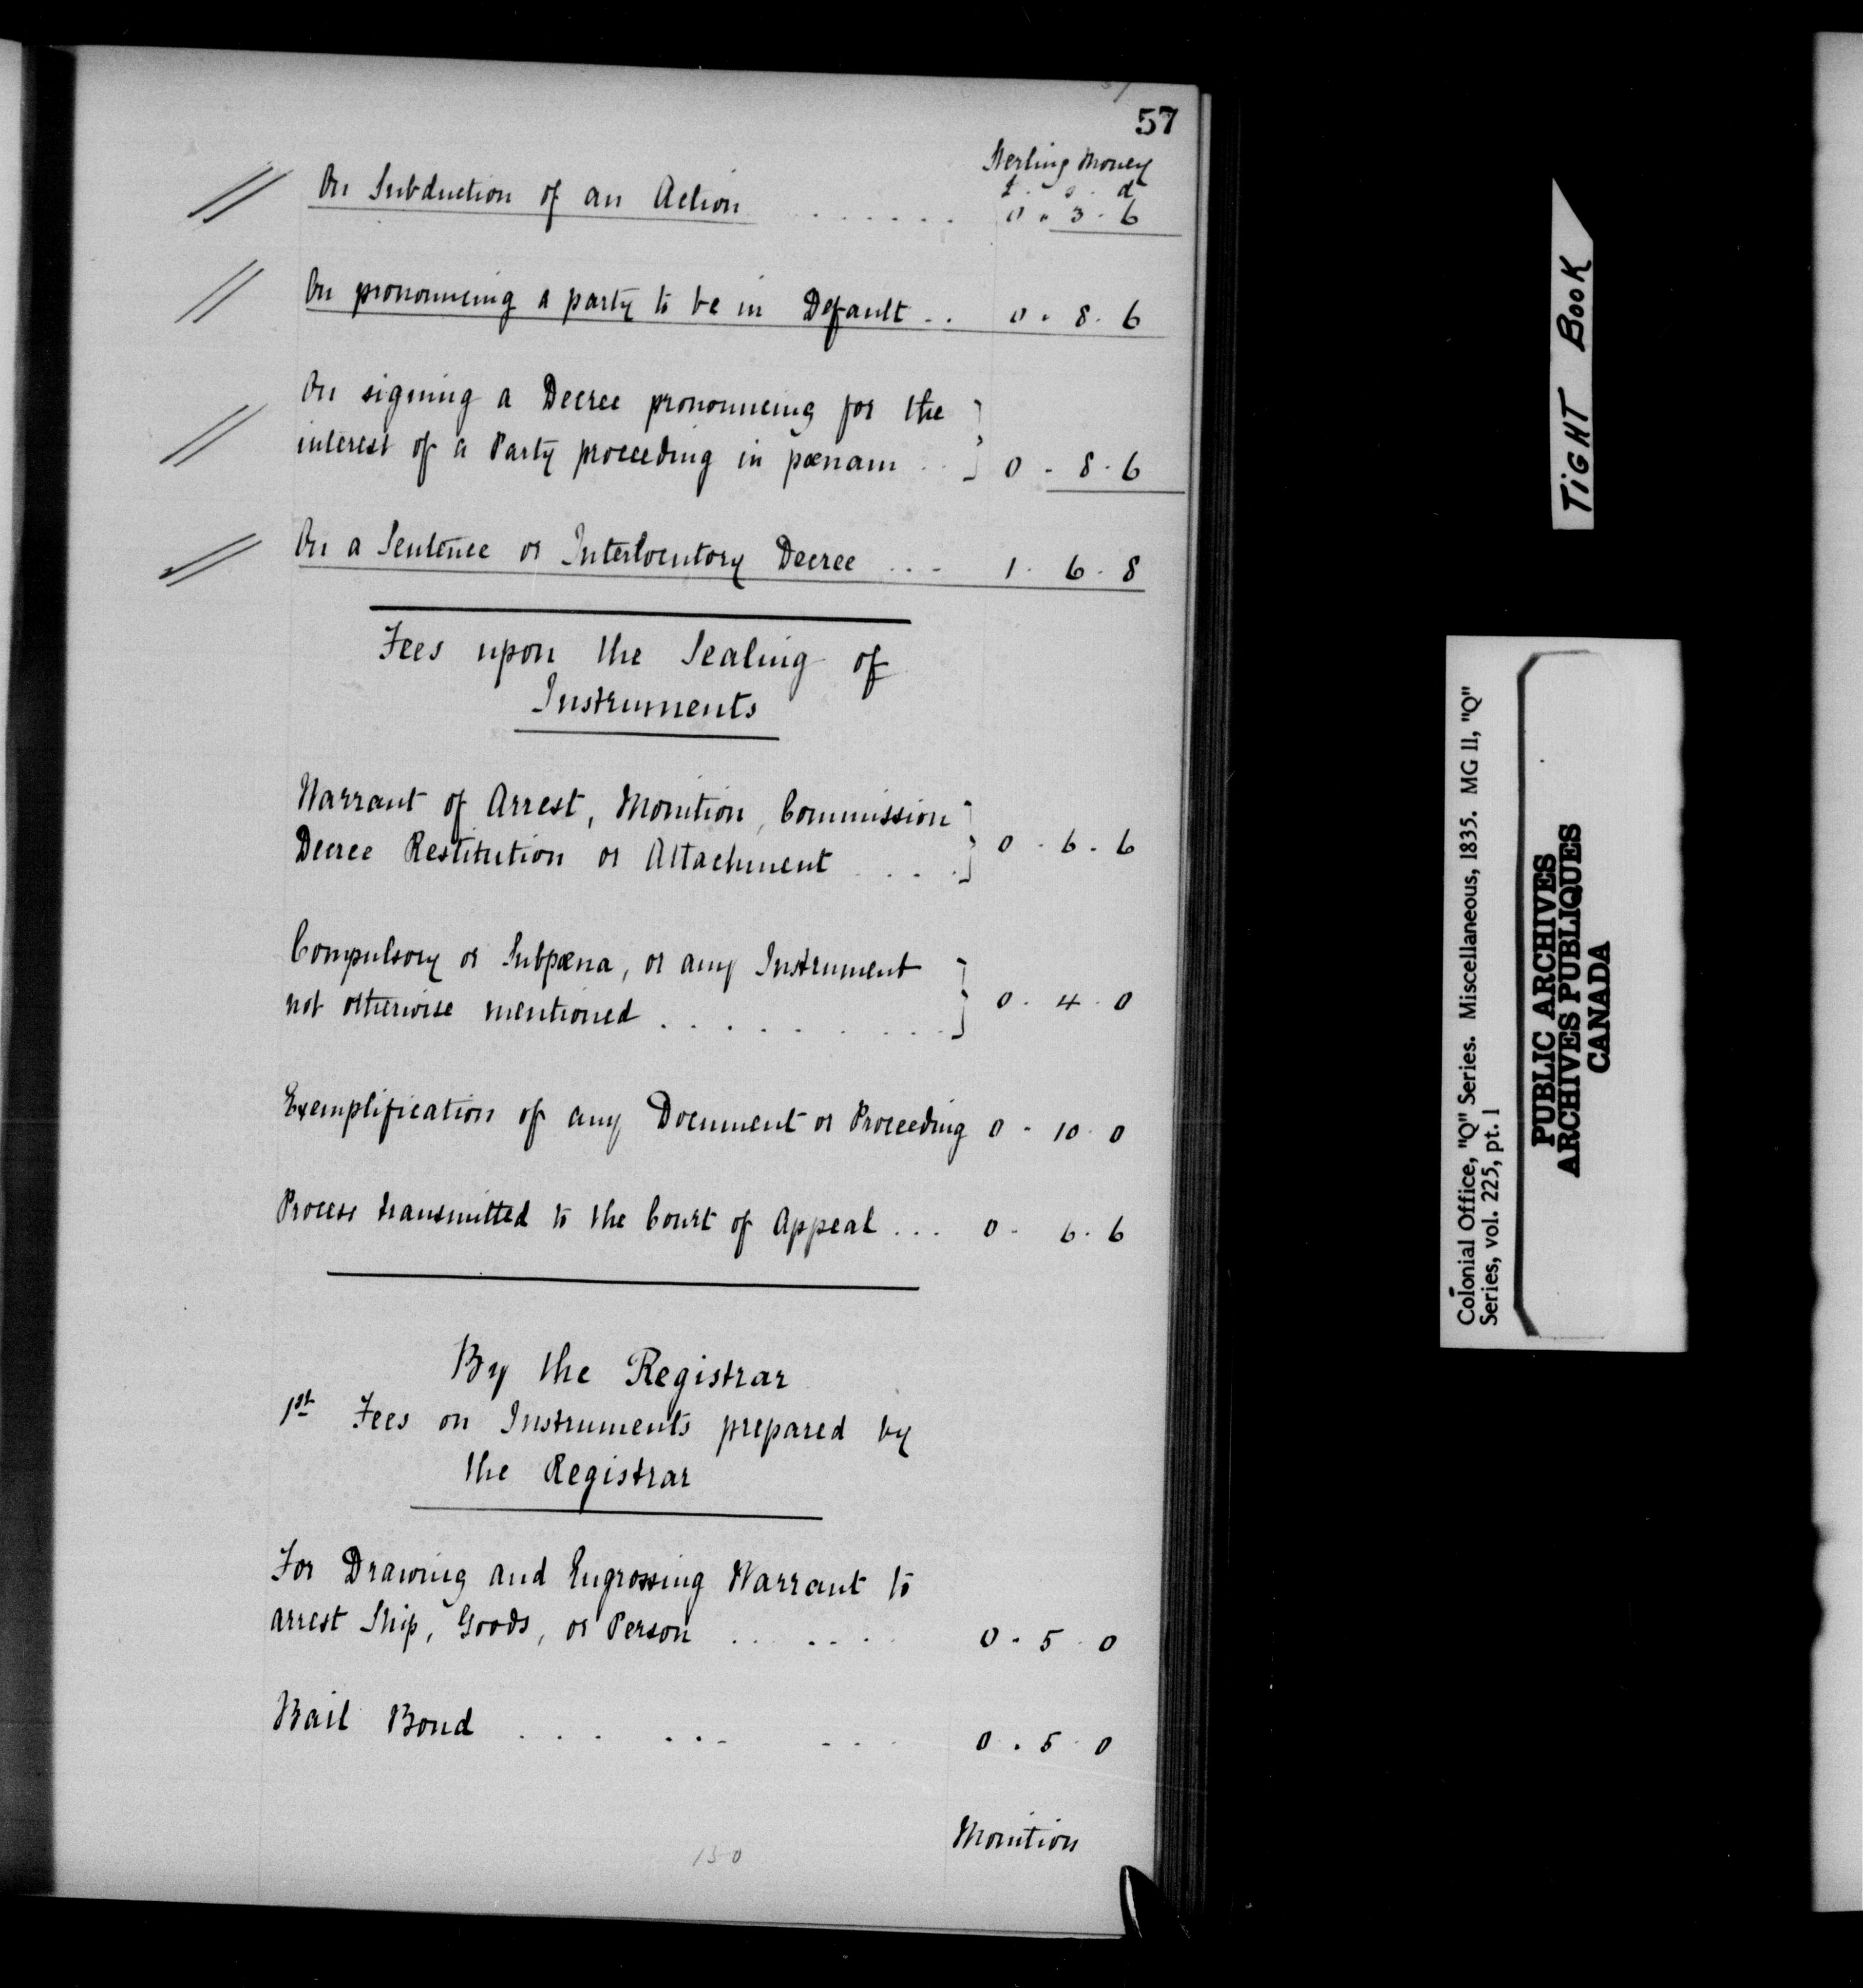 57
Sterling Money
£. s. d
On Subduction of an Action ....... 0 " 3 . 6
On pronouncing a party to be in Default .. 0 . 8 . 6
On signing a Decree pronouncing for the
interest of a Party proceeding in pœnam .. 0 - 8 . 6
On a Sentence or Interlocutory Decree ... 1 . 6 . 8
Fees upon the Sealing of
Instruments
Warrant of Arrest, Monition, Commission
Decree Restitution or Attachment .... 0 . 6 . 6
Compulsory or Subpœna, or any Instrument
not otherwise mentioned ......... 0 . 4 . 0
Exemplification of any Document or Proceeding 0 - 10 . 0
Process transmitted to the Court of Appeal ... 0 - 6 . 6
By the Registrar
1st Fees on Instruments prepared by
the Registrar
For Drawing and Engrossing Warrant to
arrest Ship, Goods, or Person ...... 0 - 5 . 0
Bail Bond ... ... ... 0 . 5 . 0
Monition
130
TIGHT BOOK
Colonial Office, "Q" Series. Miscellaneous, 1835. MG 11, "Q"
Series, vol. 225, pt. 1
PUBLIC ARCHIVES
ARCHIVES PUBLIQUES
CANADA